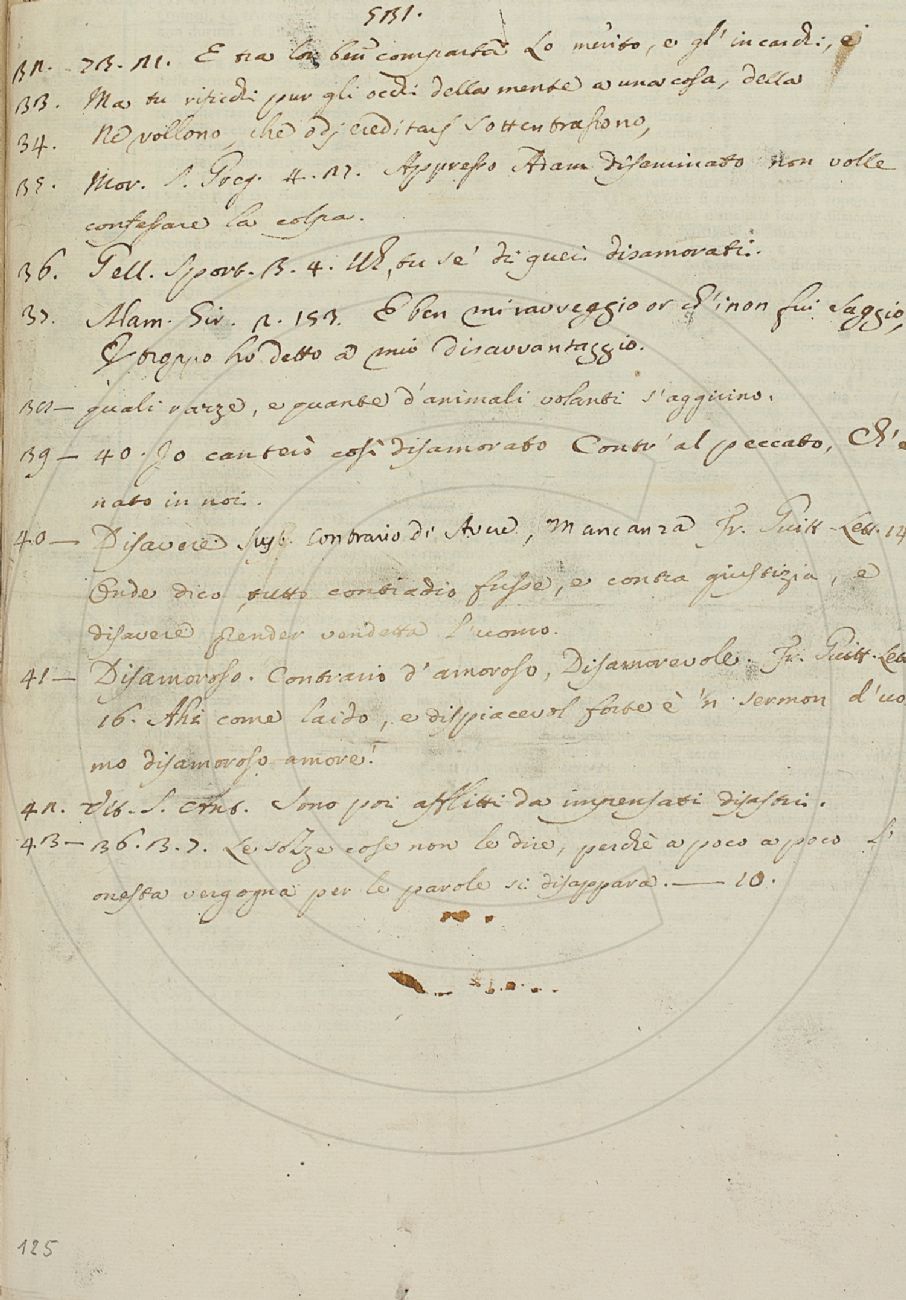 531.
32. 23. 21. E tra lor ben comparta Lo merito, e gl' incarchi, e
33. Ma tu rificchi pur gli occhi della mente a una cosa, della
34. Ne vollono, che ereditarj sottentrassono,
35. Mor. S. Greg. 4. 27. Appresso Adam disaminato non volle
confessare la colpa.
36. Gell. Sport. 3. 4. tu se' di quei disamorati.
37. Alam. Gir. 2. 153. E ben mi ravveggio or ch' i non fui saggio,
E troppo ho detto a mio disavvantaggio.
38 — quali razze, e quante d'animali volanti s'aggirino.
39 — 40. Io canterò così disamorato Contr' al peccato, Ch' è
nato in noi.
40 — Disavere Sust. Contrario di Avere, Mancanza Fr. Guitt. Lett. 14
Onde dico tutto contradio fusse, e contra giustizia, e
disavere prender vendetta l'uomo.
41 — Disamoroso. Contrario d'amoroso, Disamorevole. Fr. Guitt. Lett
16. Ahi come laido, e dispiacevol forte è 'n sermon d'uo
mo disamoroso amore!
42. Vit. S. Ant. Sono poi afflitti da impensati disastri.
43 — 36. 3. 7. Le sozze cose non le dire, perchè a poco a poco l'
onesta vergogna per le parole si disappara. — 10.
125